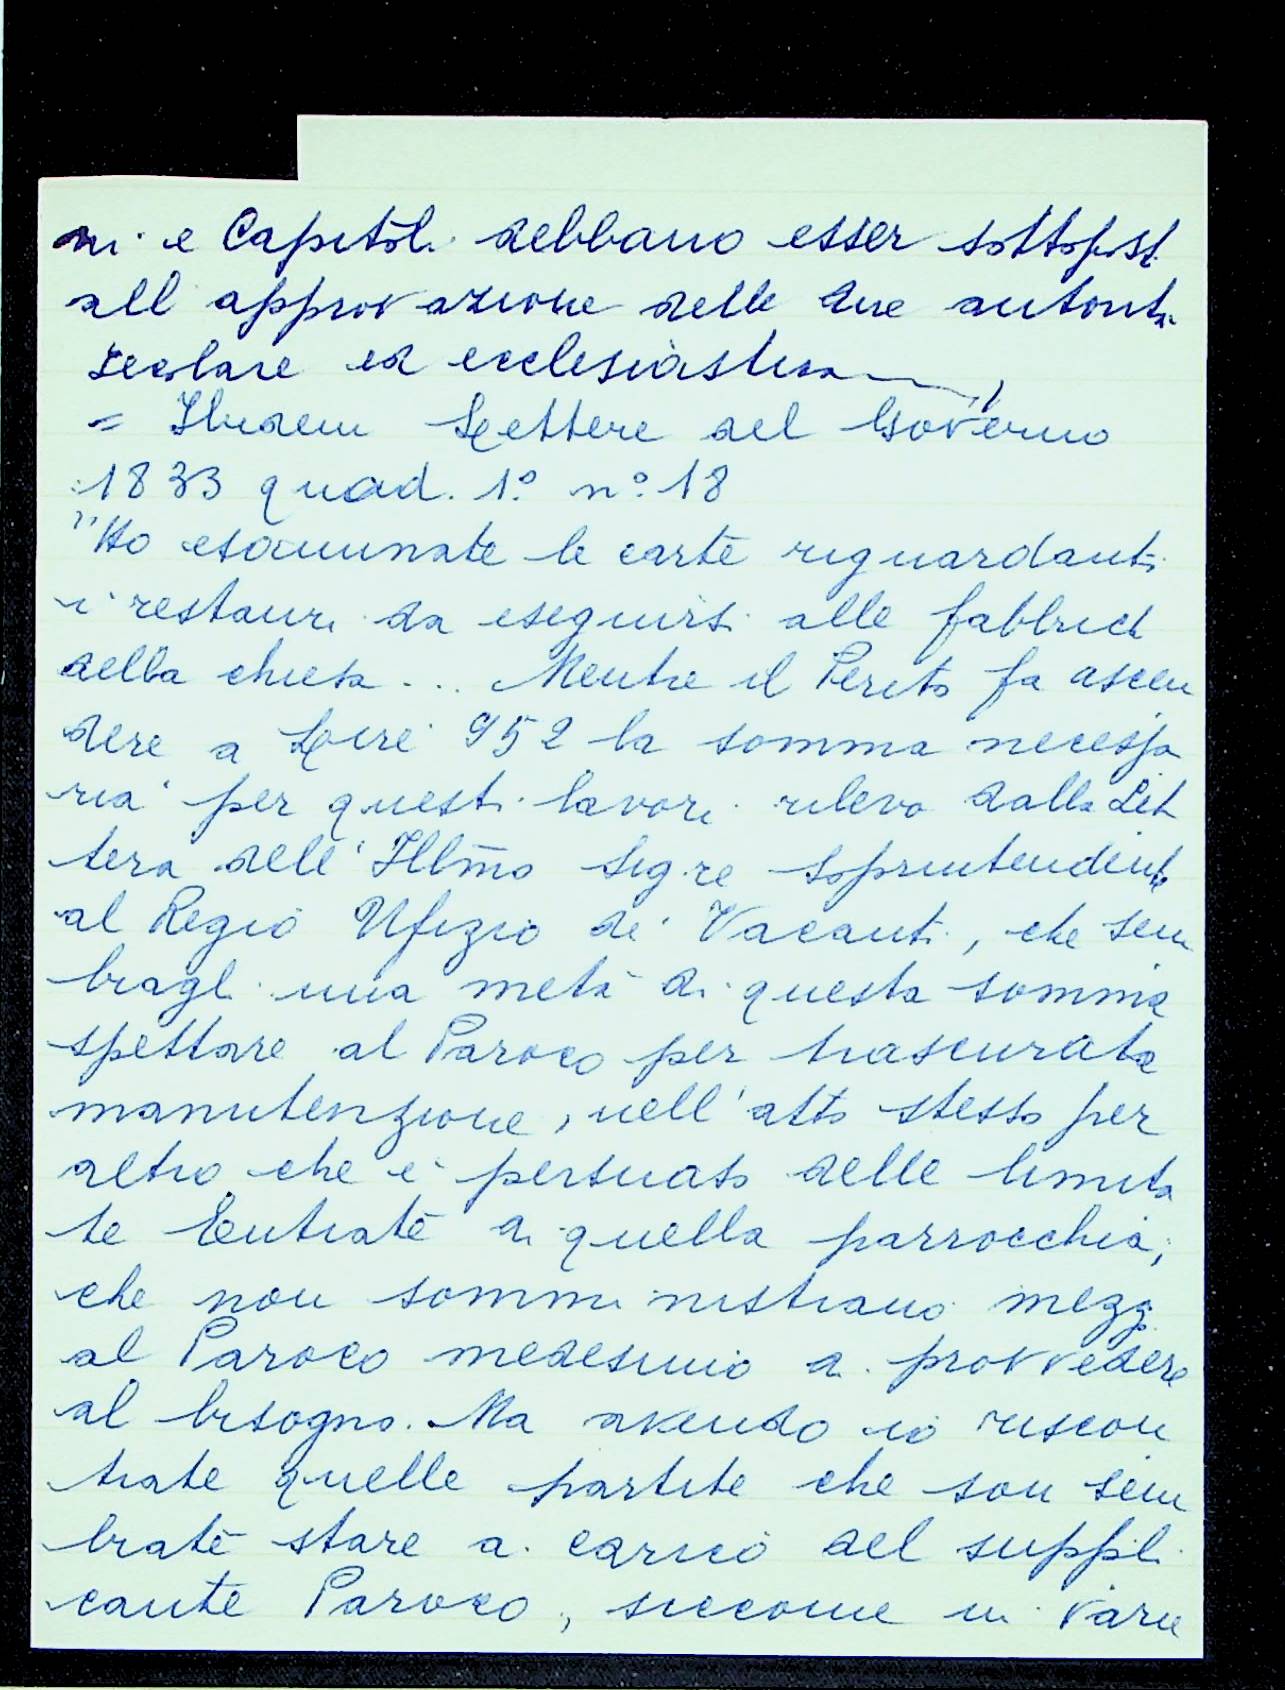 ni e Capitoli debbano esser sottopost
all approvazione delle due autorità
secolare ed ecclesiastica "
= Ibidem Lettere del Governo
1833 quad. 1º nº 18
"Ho esaminate le carte riguardanti
i restauri da eseguirsi alle fabbrich
della chiesa ... Mentre il Perito fa ascen
dere a Lire 952 la somma necessa
ria per questi lavori rilevo dalla Let
tera dell'Illmo Sigre Soprintendente
al Regio Ufizio dei Vacanti, che sem
bragli una metà di questa somma
spettare al Paroco per trascurata
manutenzione, nell'atto stesso per
altro che è persuaso delle limita
te Entrate di quella parrocchia,
che non somministrano mezzi
al Paroco medesimo di provvedere
al bisogno. Ma avendo io riscon
trate quelle partite che son sem
brate stare a carico del suppli
cante Paroco, siccome in varie